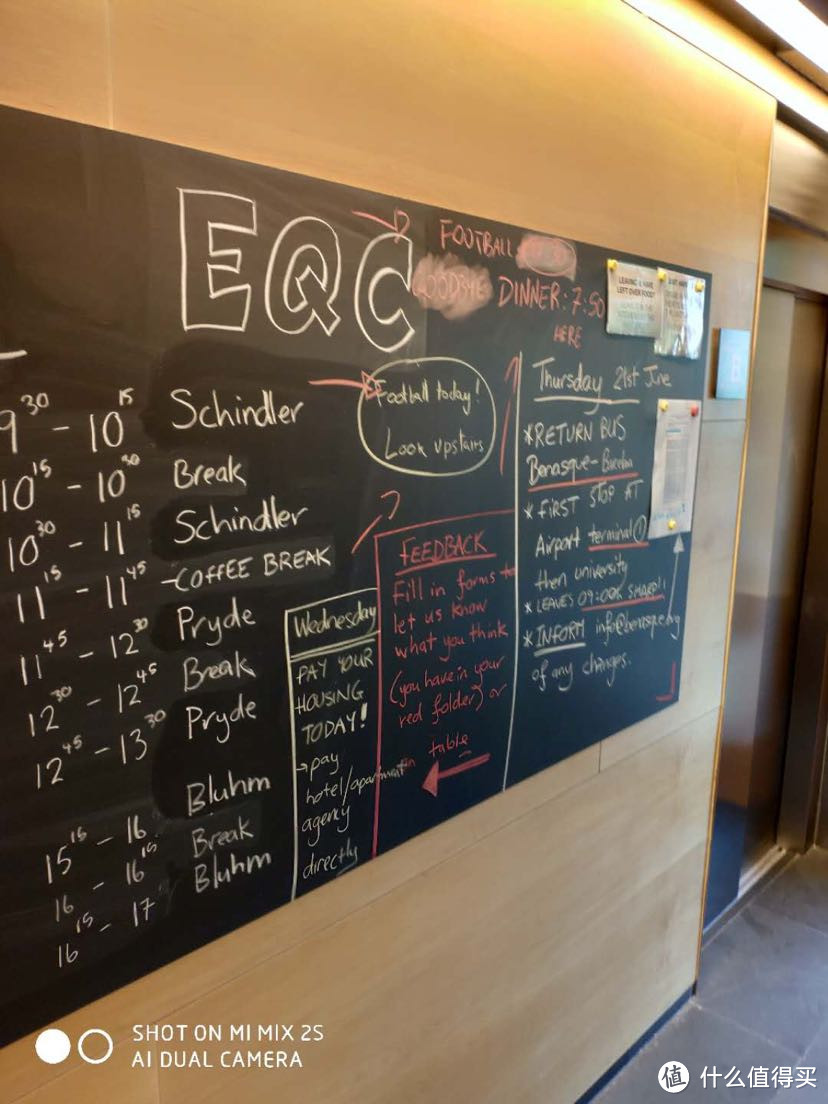 EQC
FOOTBALL
GOODBYE DINNER: 7:50
HERE
LEAVING & HAVE
LEFT OVER FOOD?
9 30 - 10 15 Schindler
10 15 - 10 30 Break
10 30 - 11 15 Schindler
11 15 - 11 45 - COFFEE BREAK
11 45 - 12 30 Pryde
12 30 - 12 45 Break
12 45 - 13 30 Pryde
15 15 - 16 Bluhm
16 - 16 15 Break
16 15 - 17 Bluhm
Football today!
Look upstairs
Wednesday
PAY YOUR
HOUSING
TODAY!
→ pay
hotel/apartment
agency
directly
FEEDBACK
Fill in forms to
let us know
what you think
(you have in your
red folder) or
on table
Thursday 21st June
* RETURN BUS
Benasque-
* FIRST STOP AT
Airport terminal ①
then university
* LEAVES 09:00h SHARP!!
* INFORM info@benasque.org
of any changes.
SHOT ON MI MIX 2S
AI DUAL CAMERA
值 什么值得买